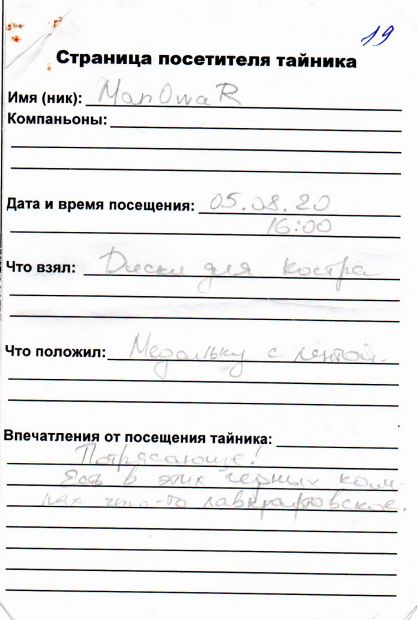 19
Страница посетителя тайника
Имя (ник): ManOwaR
Компаньоны:
Дата и время посещения: 05.08.20
16:00
Что взял: Диски для костра
Что положил: Медальку с лентой.
Впечатления от посещения тайника:
Потрясающе!
Есть в этих черных кам-
нях что-то лавкрафтовское.